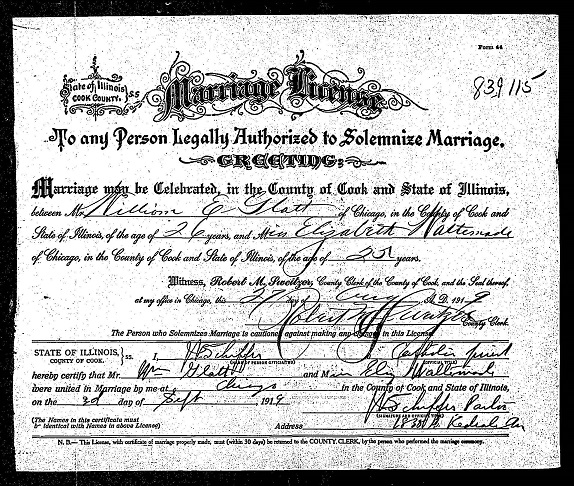 Form 44
State of Illinois
COOK COUNTY. SS
Marriage License
839115
To any Person Legally Authorized to Solemnize Marriage.
GREETING:
Marriage may be Celebrated, in the County of Cook and State of Illinois,
between Mr. William E Glatt of Chicago, in the County of Cook and
State of Illinois, of the age of 26 years, and Miss Elizabeth
of Chicago, in the County of Cook and State of Illinois, of the age of years.
Witness, Robert M. Sweitzer, County Clerk of the County of Cook, and the Seal thereof,
at my office in Chicago, this 27 day of Aug A.D. 1919
Robert M Sweitzer County Clerk.
The Person who Solemnizes Marriage is cautioned against making any change in this License
STATE OF ILLINOIS, COUNTY OF COOK. ss. I, a Catholic priest
hereby certify that Mr. Wm Glatt and Miss Eliz
were united in Marriage by me at Chicago in the County of Cook and State of Illinois,
on the 3d day of Sept 1919
(The Names in this certificate must
be identical with Names in above License)
Pastor
(SIGNATURE AND OFFICIAL TITLE)
Address
N. B.—This License, with certificate of marriage properly made, must (within 30 days) be returned to the COUNTY CLERK, by the person who performed the marriage ceremony.